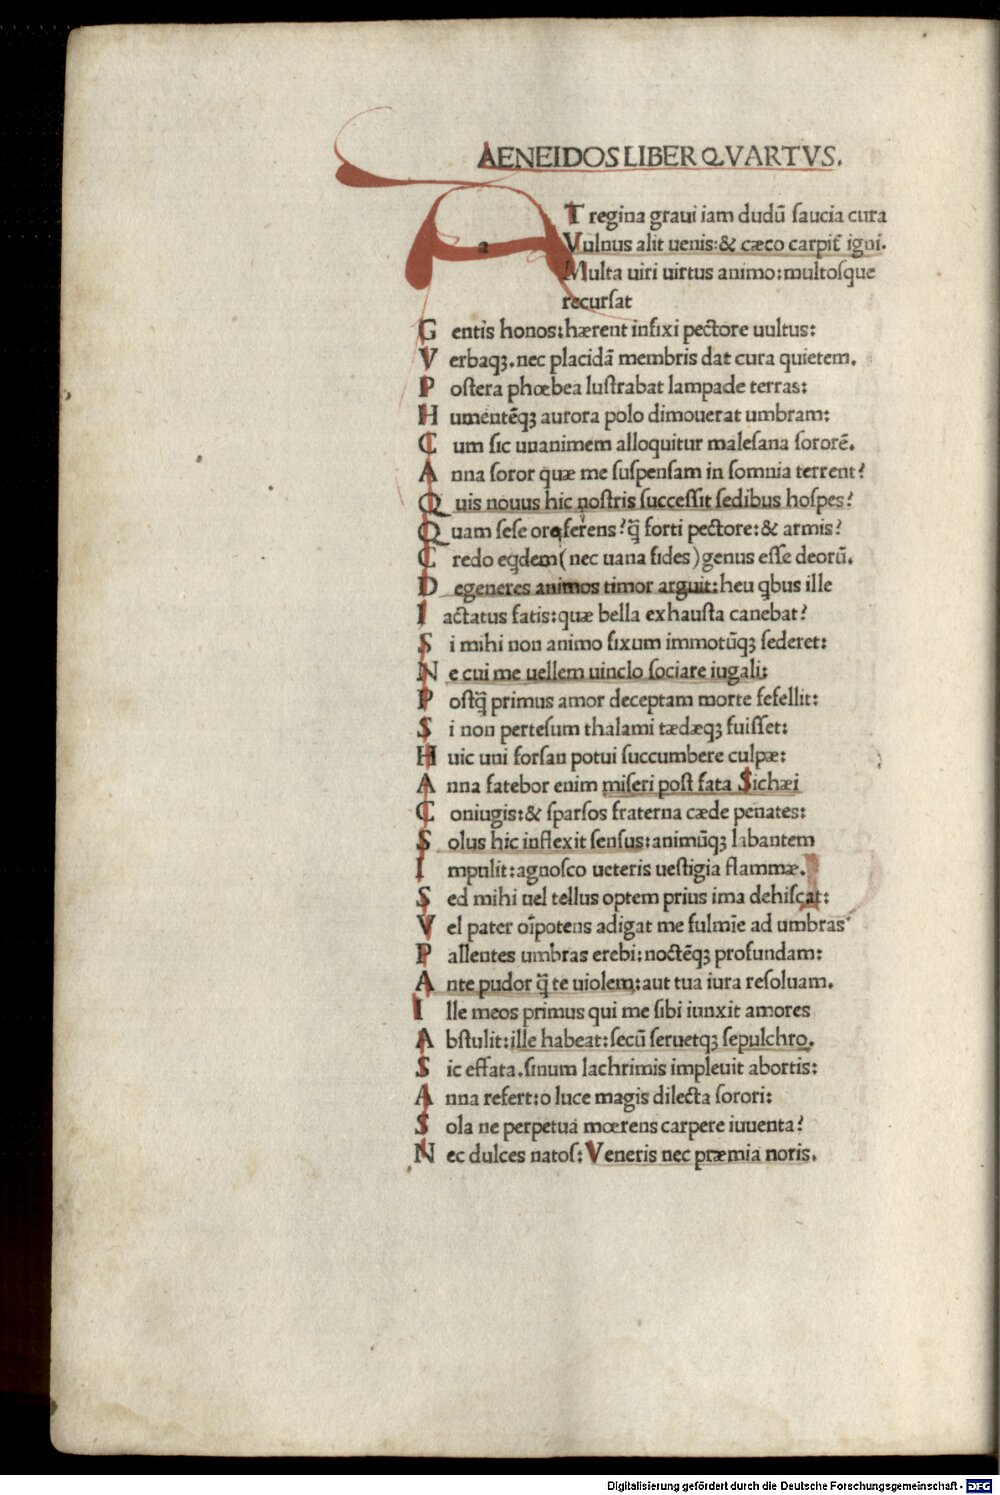 AENEIDOS LIBER QVARTVS.
AT regina graui iam dudū ſaucia cura
Vulnus alit uenis:& cæco carpit᷒ igni.
Multa uiri uirtus animo:multoſque
recurſat
G entis honos:hærent infixi pectore uultus:
V erbaqꝫ.nec placidā membris dat cura quietem.
P oſtera phœbea luſtrabat lampade terras:
H umentēqꝫ aurora polo dimouerat umbram:
C um ſic unanimem alloquitur maleſana ſororē.
A nna ſoror quæ me ſuſpenſam in ſomnia terrent?
Q uis nouus hic noſtris ſucceſſit ſedibus hoſpes?
Q uam ſeſe ore ferens?q̃ forti pectore:& armis?
C redo eqdem(nec uana fides)genus eſſe deorū.
D egeneres animos timor arguit:heu qbus ille
I actatus fatis:quæ bella exhauſta canebat?
S i mihi non animo fixum immotūqꝫ ſederet:
N e cui me uellem uinclo ſociare iugali:
P oſtq̃ primus amor deceptam morte fefellit:
S i non perteſum thalami tædæqꝫ fuiſſet:
H uic uni forſan potui ſuccumbere culpæ:
A nna fatebor enim miſeri poſt fata Sichæi
C oniugis:& ſparſos fraterna cæde penates:
S olus hic inflexit ſenſus:animūqꝫ labantem
I mpulit:agnoſco ueteris ueſtigia flammæ.
S ed mihi uel tellus optem prius ima dehiſcat:
V el pater oīpotens adigat me fulmīe ad umbras
P allentes umbras erebi:noctēqꝫ profundam:
A nte pudor q̃ te uiolem:aut tua iura reſoluam.
I lle meos primus qui me ſibi iunxit amores
A bſtulit:ille habeat:ſecū ſeruetqꝫ ſepulchro.
S ic effata.ſinum lachrimis impleuit abortis:
A nna refert:o luce magis dilecta ſorori:
S ola ne perpetua mœrens carpere iuuenta?
N ec dulces natoſ:Veneris nec præmia noris.
Digitalisierung gefördert durch die Deutsche Forschungsgemeinschaft - DFG